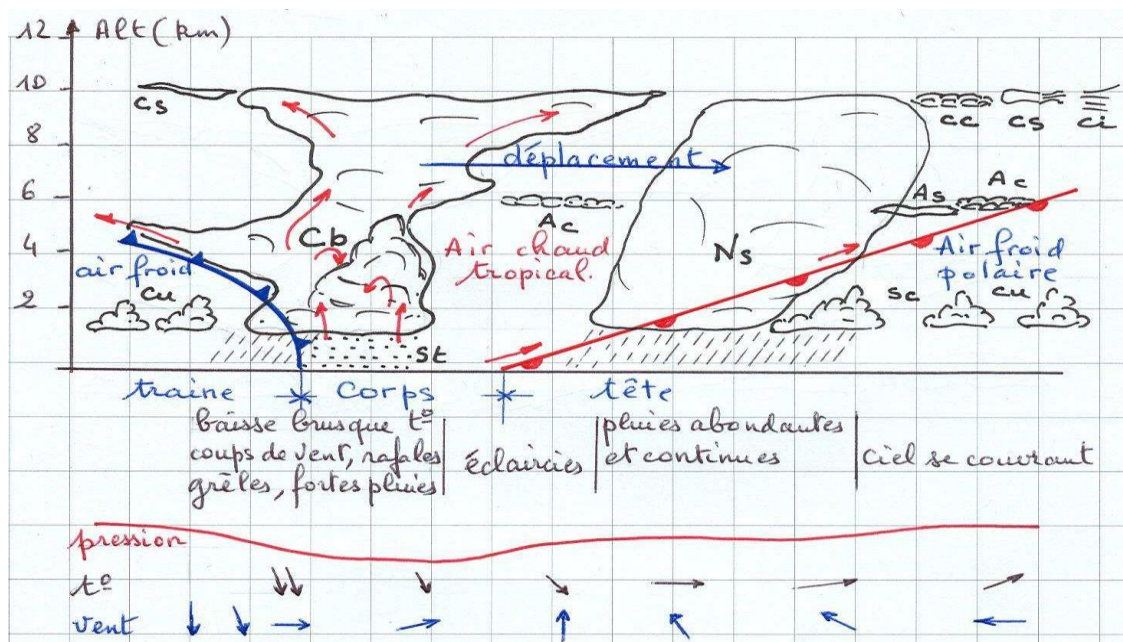 12
Alt (km)
10
8
6
4
2
Cs
Cc
Cs
Ci
déplacement
As
Ac
Ac
Cb
Air chaud
tropical.
Ns
Air froid
polaire
air froid
Cu
Sc
Cu
St
traine
Corps
tête
baisse brusque t°
coups de vent, rafales
grêles, fortes pluies
éclaircies
pluies abondantes
et continues
ciel se couvrant
pression
t°
vent